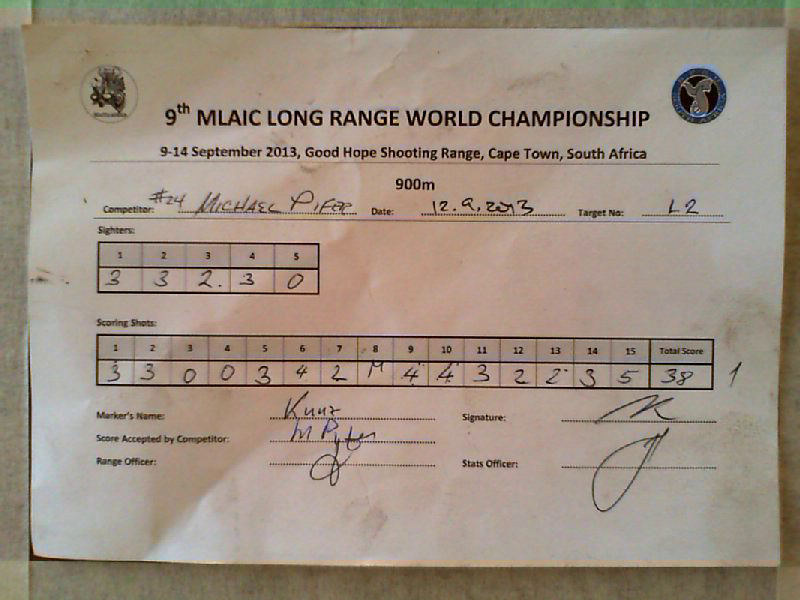 9th MLAIC LONG RANGE WORLD CHAMPIONSHIP
9-14 September 2013, Good Hope Shooting Range, Cape Town, South Africa
900m
Competitor: #24 MICHAEL PIFER Date: 12.9.2013 Target No: L2
Sighters:
1 2 3 4 5
3 3 2. 3 0
Scoring Shots:
1 2 3 4 5 6 7 8 9 10 11 12 13 14 15 Total Score
3 3 0 0 3 4 2 M 4 4 3 2 2 3 5 38 1
Marker's Name: Kunz Signature:
Score Accepted by Competitor:
Range Officer: Stats Officer: